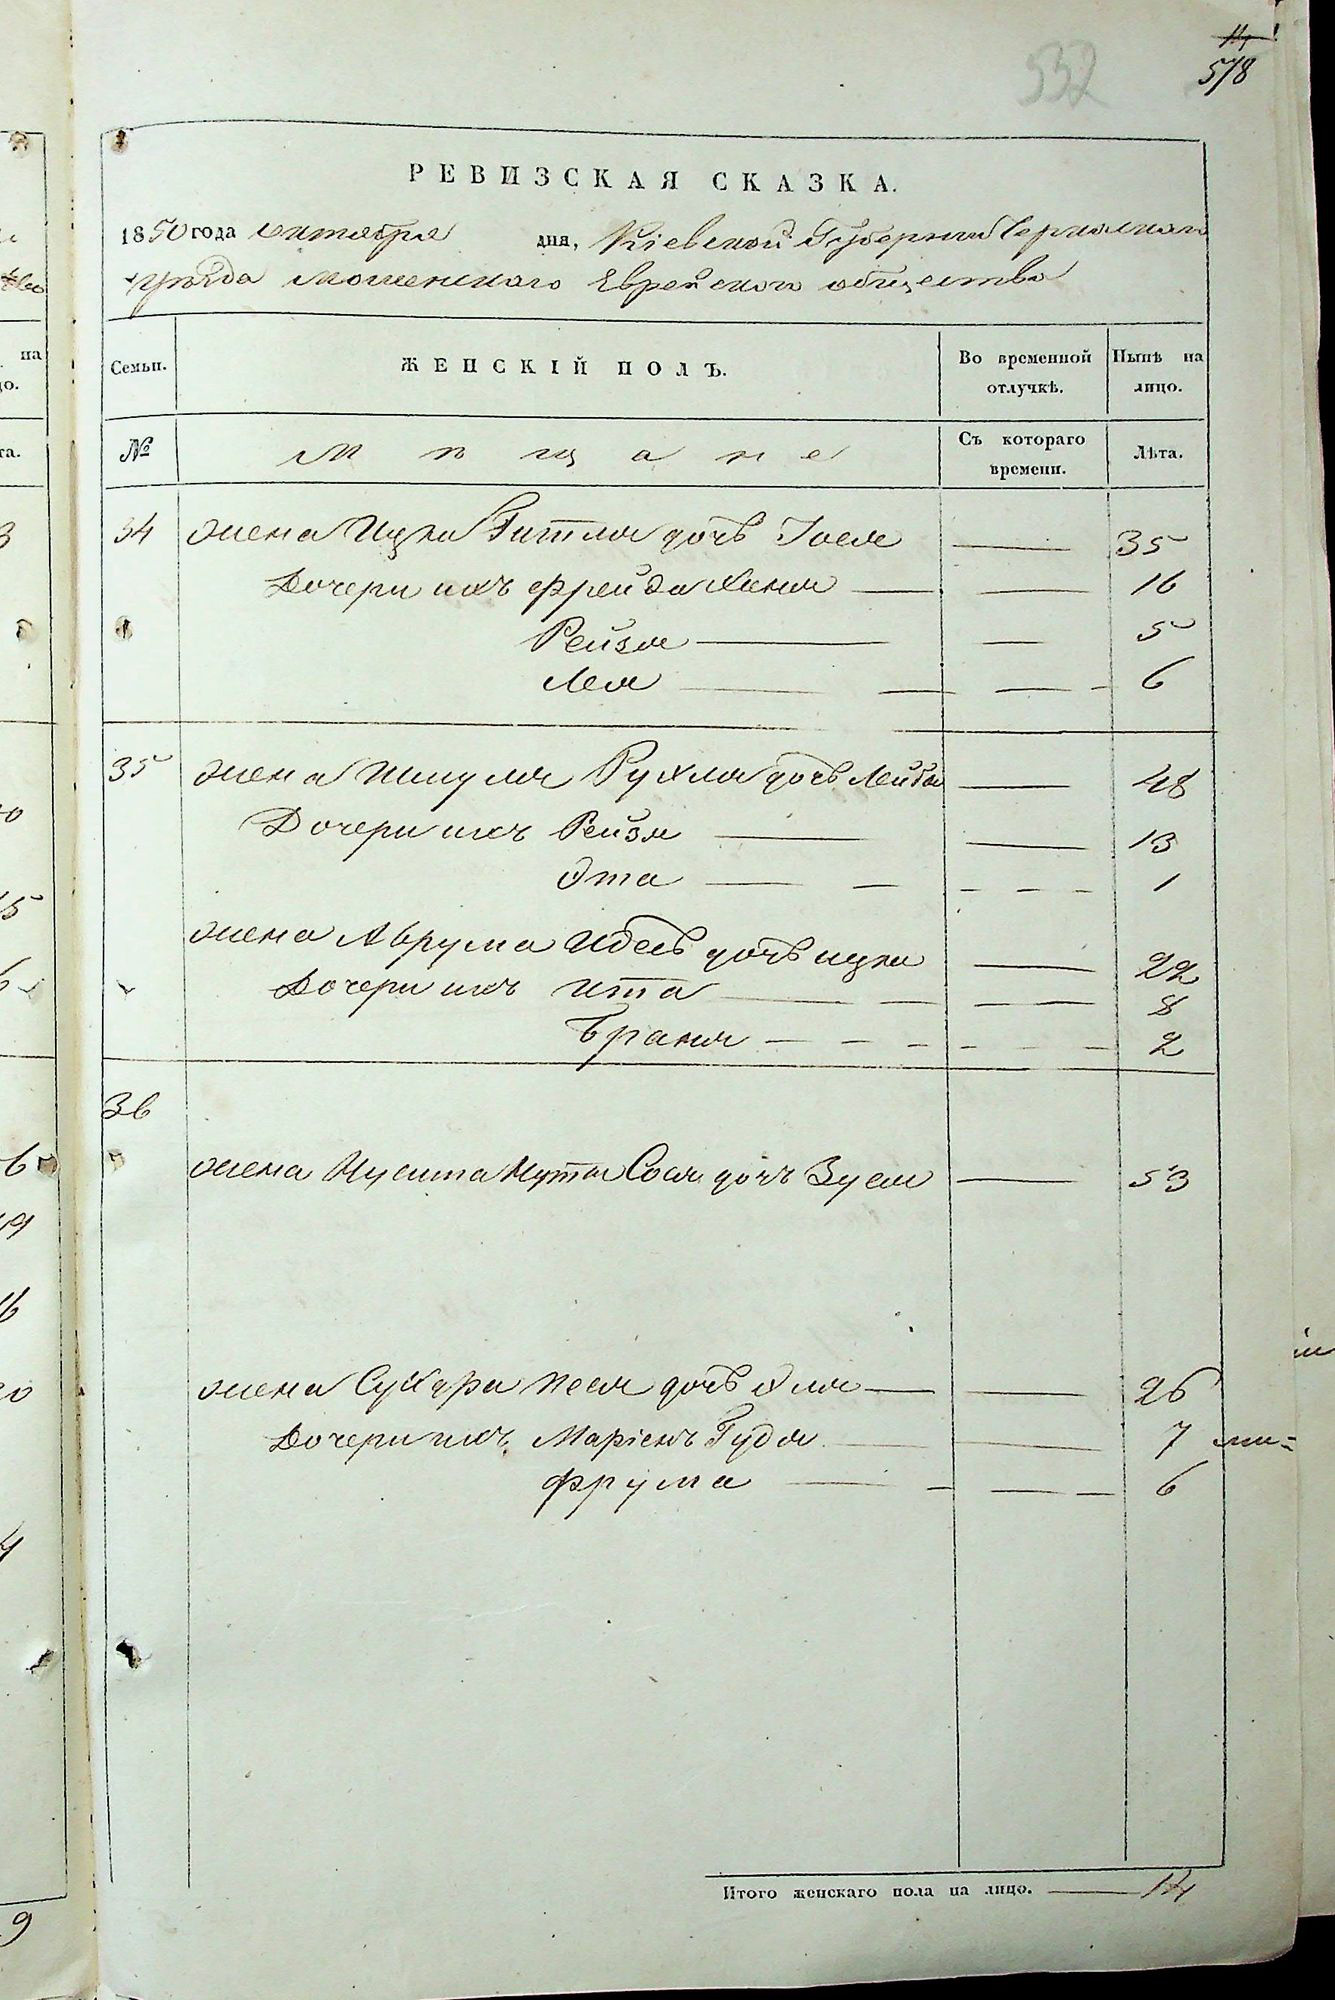 14
578
532
РЕВИЗСКАЯ СКАЗКА.
1850 года октября дня, Кіевской Губерніи Черкаскаго
уѣзда мошенскаго Еврейскаго общества
Семьи.
ЖЕНСКІЙ ПОЛЪ.
Во временной отлучкѣ.
Нынѣ на лицо.
№
Мѣщане
Съ котораго времени.
Лѣта.
34 жена Ицка Гитля дочь Іося 35
Дочери ихъ Фрейда Ханя 16
Рейзя 5
Лея 6
35 жена Шмуля Рухля дочь Лейбы 48
Дочери ихъ Рейзя 13
Эта 1
жена Аврума Идесь дочь ицка 22
Дочери ихъ Ита 8
Браня 2
36
жена Нусина Муты Сося дочь Зуси 53
жена Сухера Песя дочь Эля 26
Дочери ихъ Маріемъ Гудя 7
Фрума 6
Итого женскаго пола на лицо. 14